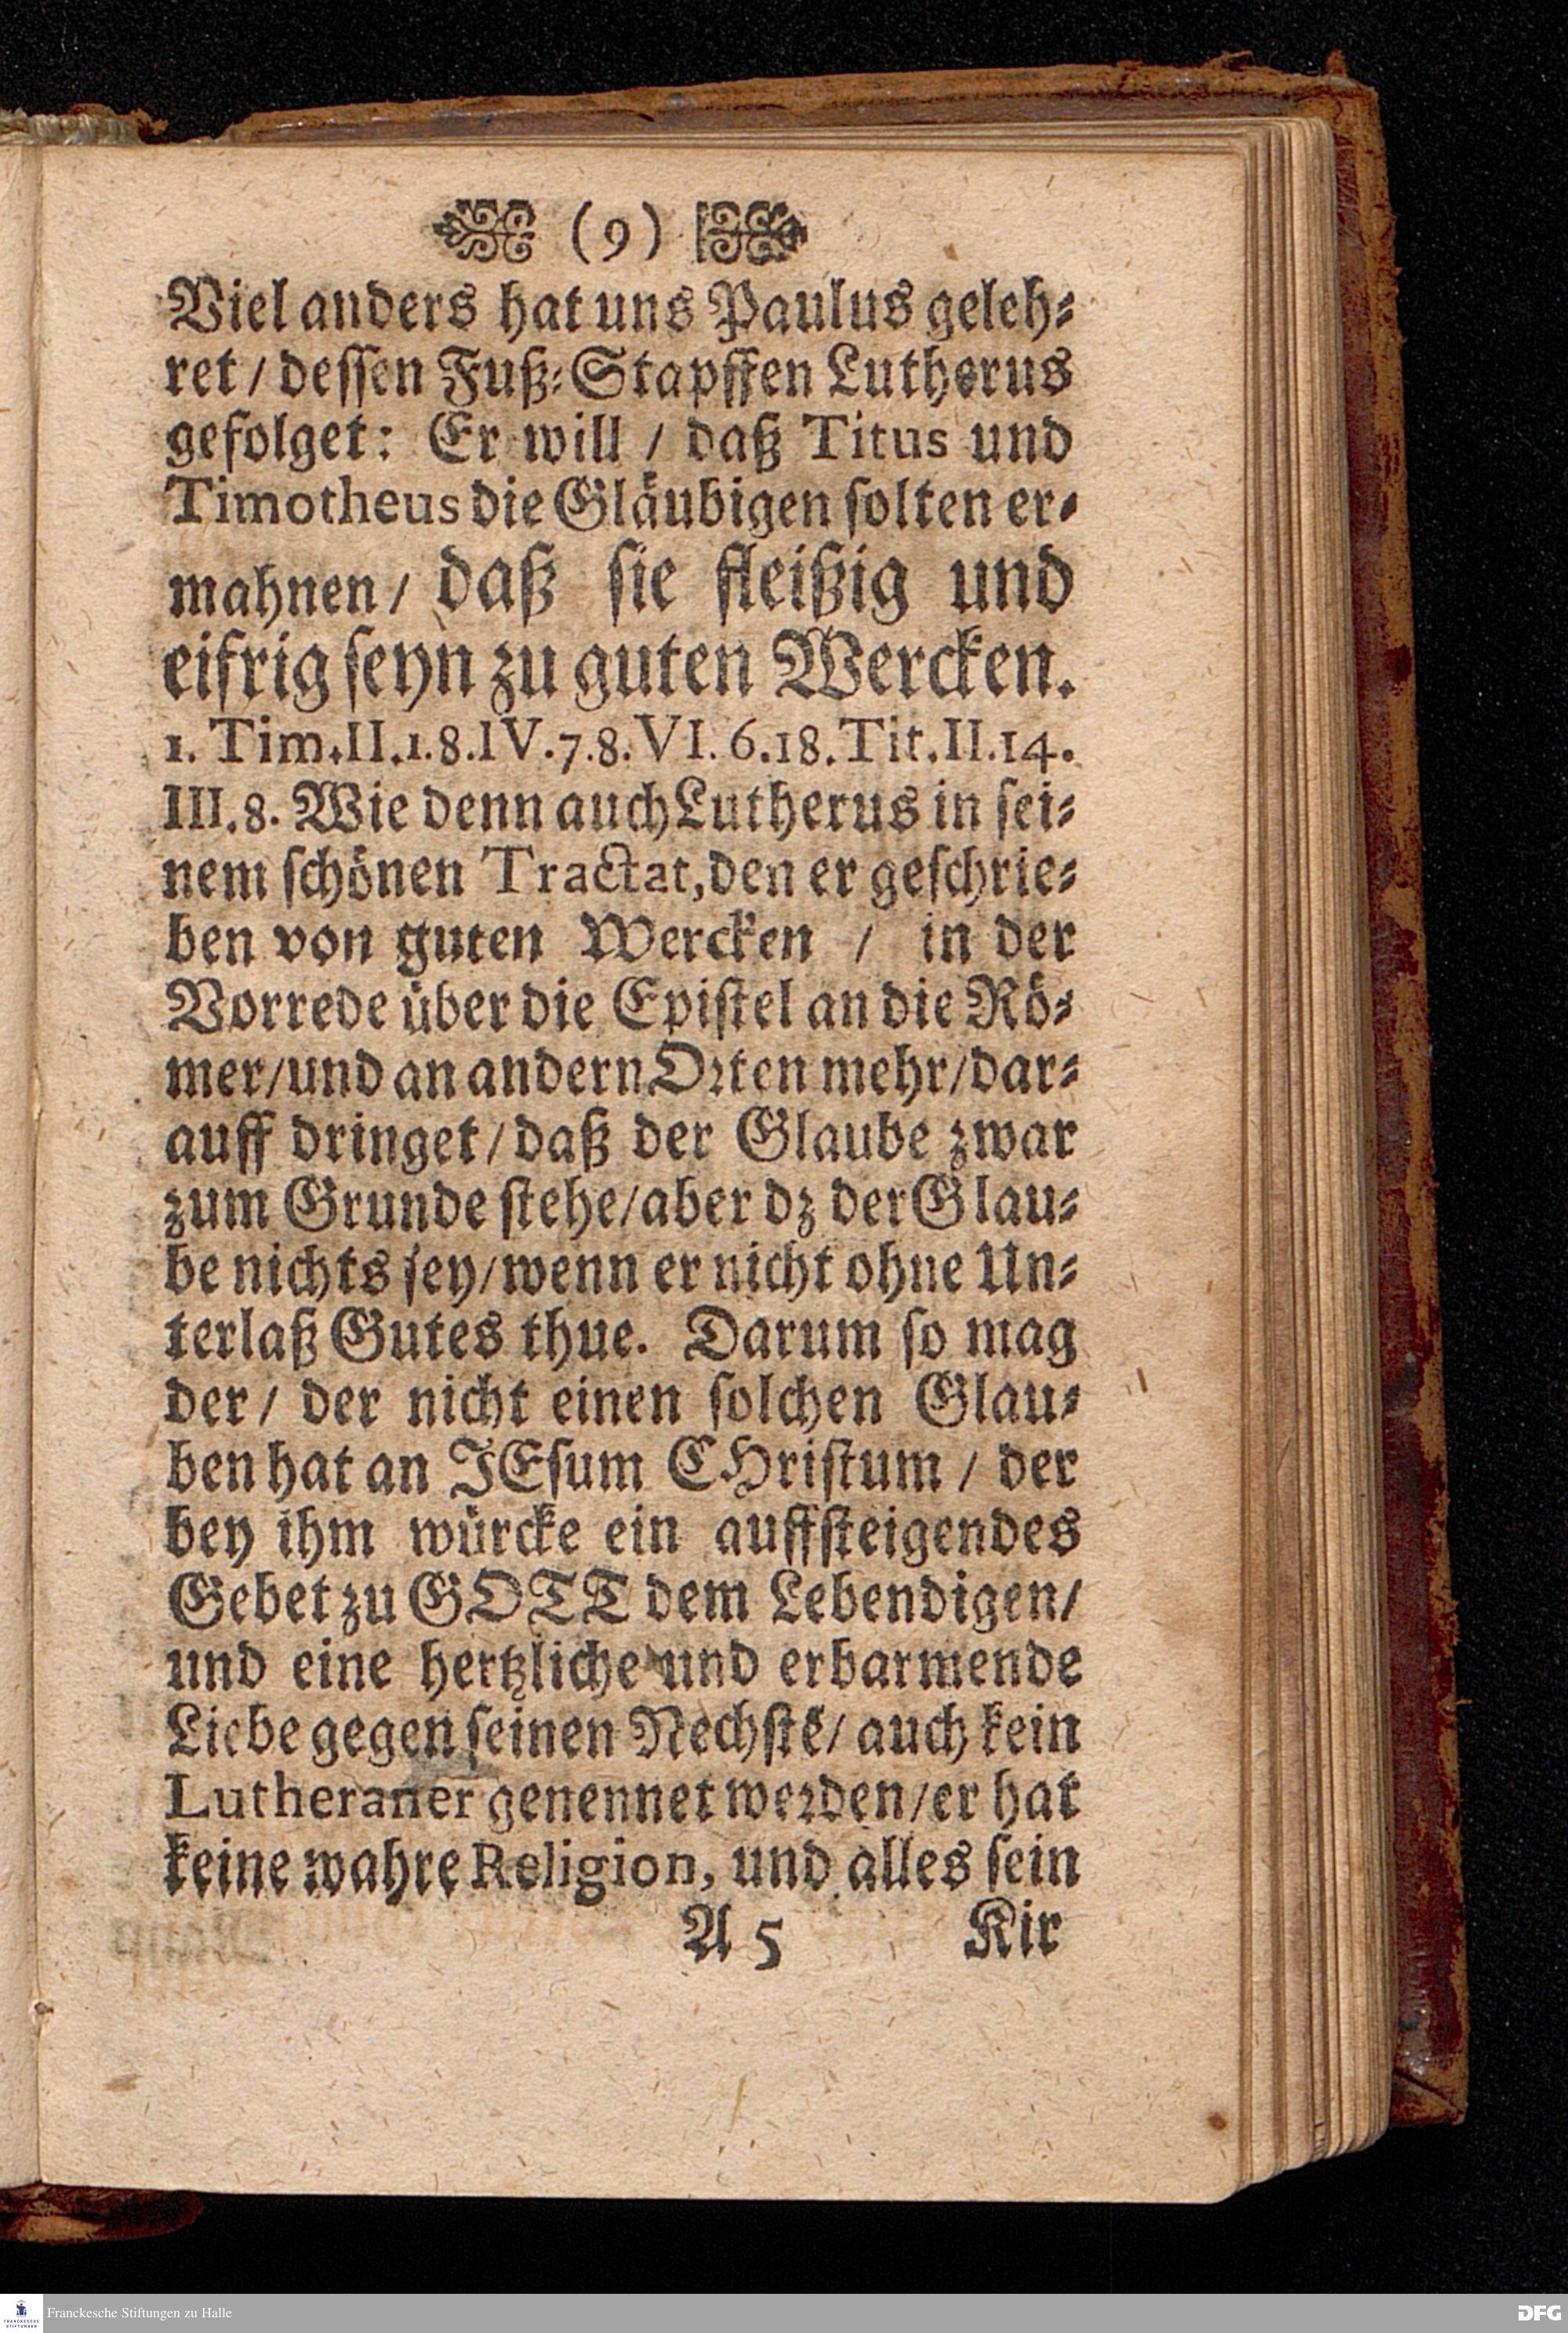 (9)
Viel anders hat uns Paulus geleh⸗
ret / dessen Fuß⸗Stapffen Lutherus
gefolget: Er will / daß Titus und
Timotheus die Gläubigen solten er⸗
mahnen / daß sie fleißig und
eifrig seyn zu guten Wercken.
1. Tim.II.1.8.IV.7.8.VI.6.18.Tit.II.14.
III.8. Wie denn auch Lutherus in sei⸗
nem schönen Tractat, den er geschrie⸗
ben von guten Wercken / in der
Vorrede über die Epistel an die Rö⸗
mer/und an andern Orten mehr/dar⸗
auff dringet / daß der Glaube zwar
zum Grunde stehe/aber dz der Glau⸗
be nichts sey/wenn er nicht ohne Un⸗
terlaß Gutes thue. Darum so mag
der / der nicht einen solchen Glau⸗
ben hat an JEsum CHristum / der
bey ihm würcke ein auffsteigendes
Gebet zu GOTT dem Lebendigen/
und eine hertzliche und erbarmende
Liebe gegen seinen Nechstẽ/ auch kein
Lutheraner genennet werden/er hat
keine wahre Religion, und alles sein
A 5 Kir
Franckesche Stiftungen zu Halle
DFG